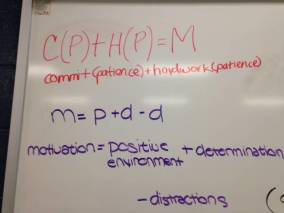 C(P)+H(P)=M
commit(patience)+hardwork(patience)
m=p+d-d
motivation=positive + determination
environment
-distractions